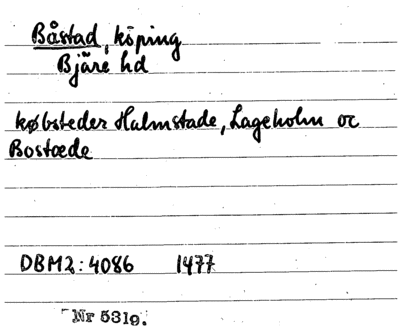 Båstad, köping
Bjäre hd
købsteder Halmstade, Lageholm oc
Bostæde
DBM2:4086 1477
Nr 5319.